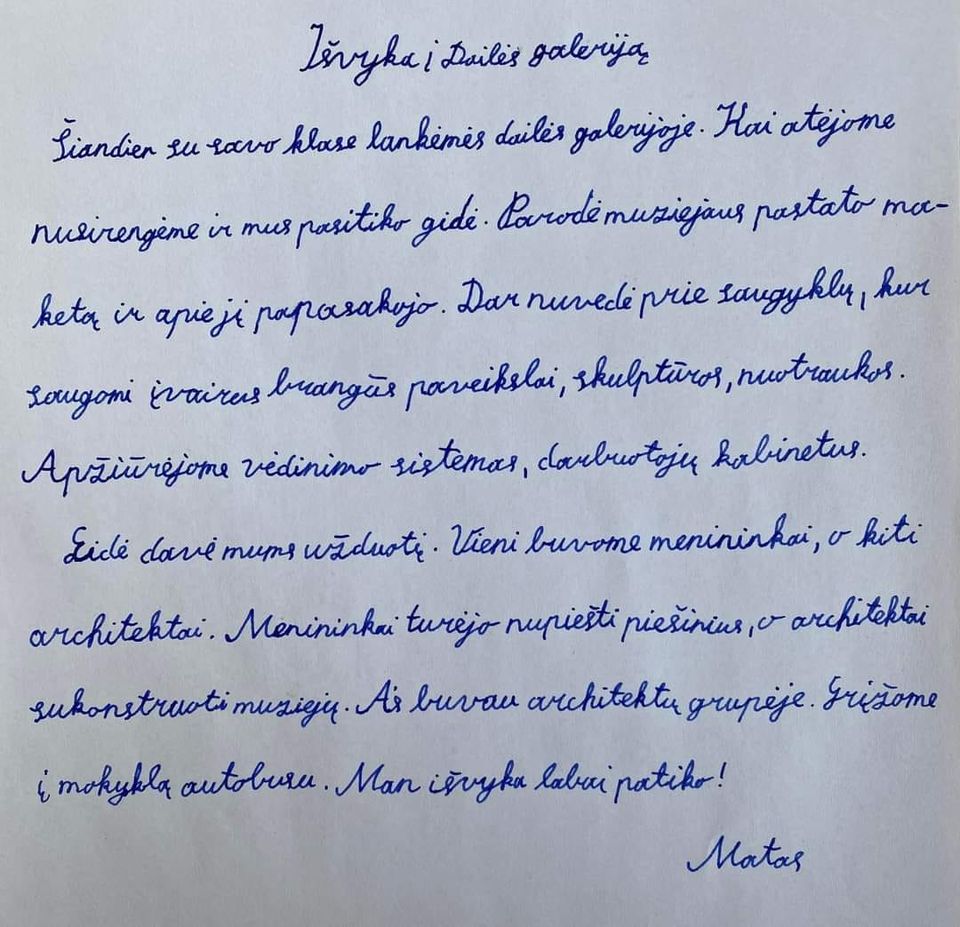 Išvyka į Dailės galeriją
Šiandien su savo klase lankėmės dailės galerijoje. Kai atėjome
nusirengėme ir mus pasitiko gidė. Parodė muziejaus pastato ma-
ketą ir apie jį papasakojo. Dar nuvedė prie saugyklų, kur
saugomi įvairus brangūs paveikslai, skulptūros, nuotraukos.
Apžiūrėjome vėdinimo sistemas, darbuotojų kabinetus.
Gidė davė mums užduotį. Vieni buvome menininkai, o kiti
architektai. Menininkai turėjo nupiešti piešinius, o architektai
sukonstruoti muziejų. Aš buvau architektų grupėje. Grįžome
į mokyklą autobusu. Man išvyka labai patiko!
Matas